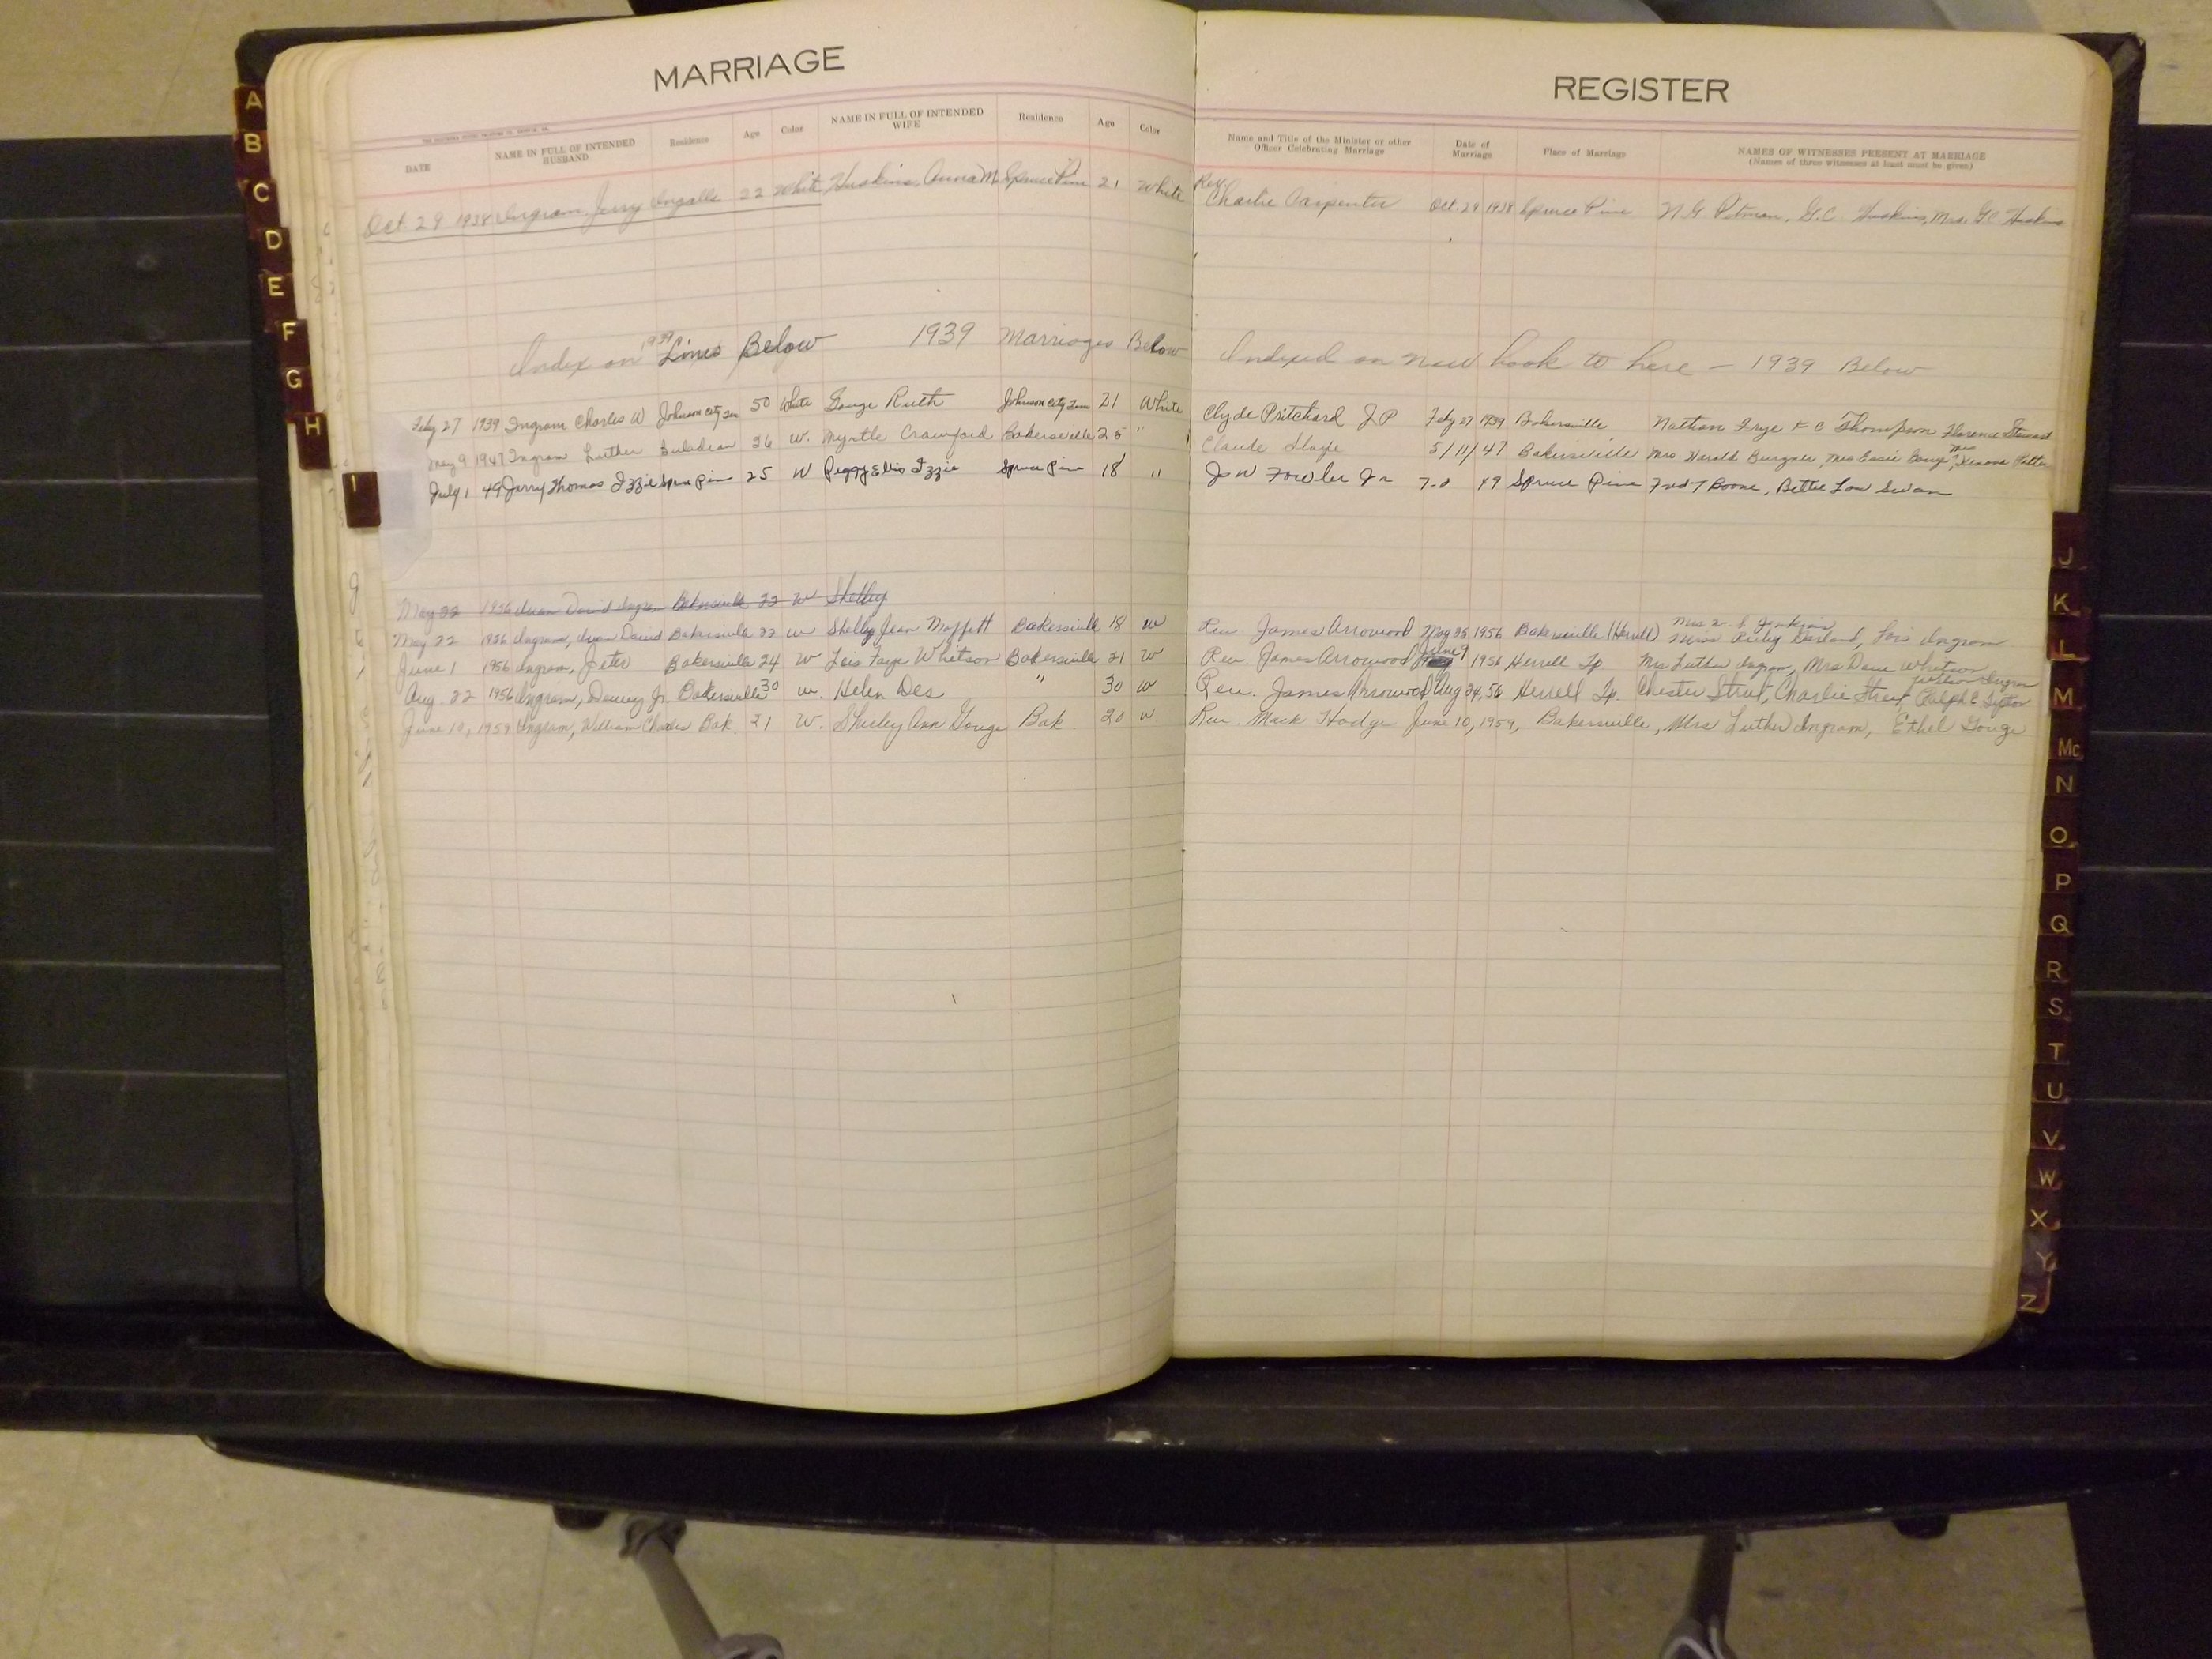 MARRIAGE
DATE NAME IN FULL OF INTENDED HUSBAND Residence Age Color NAME IN FULL OF INTENDED WIFE Residence Age Color
Oct. 29 1938 Ingram, Jerry Ingalls 22 White Huskins, Anna M. Spruce Pine 21 White
Index on 1939 Lines Below 1939 Marriages Below
Feby 27 1939 Ingram Charles W Johnson City Ten 50 White Gouge Ruth Johnson City Ten 21 White
May 9 1947 Ingram Luther 26 W. Myrtle Crawford Bakersville 25 "
July 1 49 Jerry Thomas Izzie Spruce Pine 25 W Peggy Ellis Izzie Spruce Pine 18 "
May 22 1956 David Ingram Bakersville 22 W Shelley
May 22 1956 Ingram, David Bakersville 22 W Shelby Jean Moffett Bakersville 18 W
June 1 1956 Ingram, Jeter Bakersville 24 W Lois Faye Whitson Bakersville 21 W
Aug. 22 1956 Ingram, Dewey Jr. Bakersville 30 W. Helen " 30 W
June 10, 1959 Ingram, William Charles Bak. 21 W. Shirley Ann Gouge Bak 20 W
REGISTER
Name and Title of the Minister or other Officer Celebrating Marriage Date of Marriage Place of Marriage NAMES OF WITNESSES PRESENT AT MARRIAGE
(Names of three witnesses at least must be given)
Rev. Charlie Carpenter Oct. 29 1938 Spruce Pine N.G. Pitman, G.C. Huskins, Mrs. G.C. Huskins
Indexed on new book to here - 1939 Below
Clyde Pritchard J P Feby 27 1939 Bakersville Nathan Frye F C Thompson Florence Stewart
Claude 5/11/47 Bakersville Mrs Harold Burgner, Mrs Essie Gouge, Mrs
J W Fowler Jr 7-2 49 Spruce Pine Fred T Boone, Bettie Lou Swan
Rev. James Arrowood May 25 1956 Bakersville (Herrell) Mrs Jenkins Garland, Lois Ingram
Rev. James Arrowood June 9 1956 Herrell Tp Mrs Luther Ingram, Mrs Dave Whitson
Rev. James Arrowood Aug 24, 56 Herrell Tp. Chester Street, Charlie Street, Ralph E
Rev. Mack Hodge June 10, 1959, Bakersville, Mrs Luther Ingram, Ethel Gouge
A
B
C
D
E
F
G
H
I
J
K
L
M
Mc
N
O
P
Q
R
S
T
U
V
W
X
Y
Z